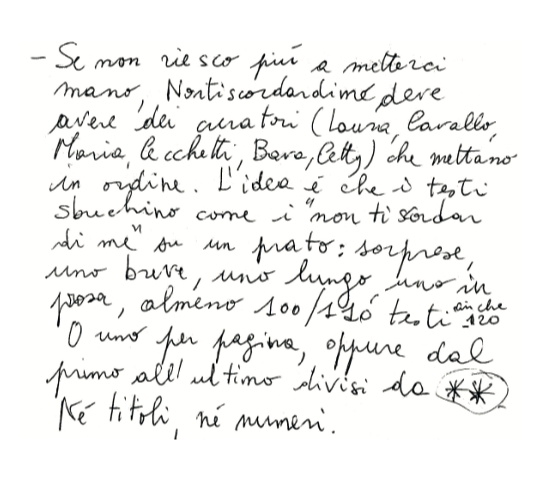 – Se non riesco più a metterci
mano, Nontiscordardimé deve
avere dei curatori (Laura, Cavallo,
Maria, Cecchetti, Bara, Cetty) che mettano
in ordine. L'idea é che i testi
sbuchino come i "non ti scordar
di mé" su un prato: sorprese,
uno breve, uno lungo uno in
prosa, almeno 100/110 testi anche 120
O uno per pagina, oppure dal
primo all'ultimo divisi da **
Né titoli, né numeri.